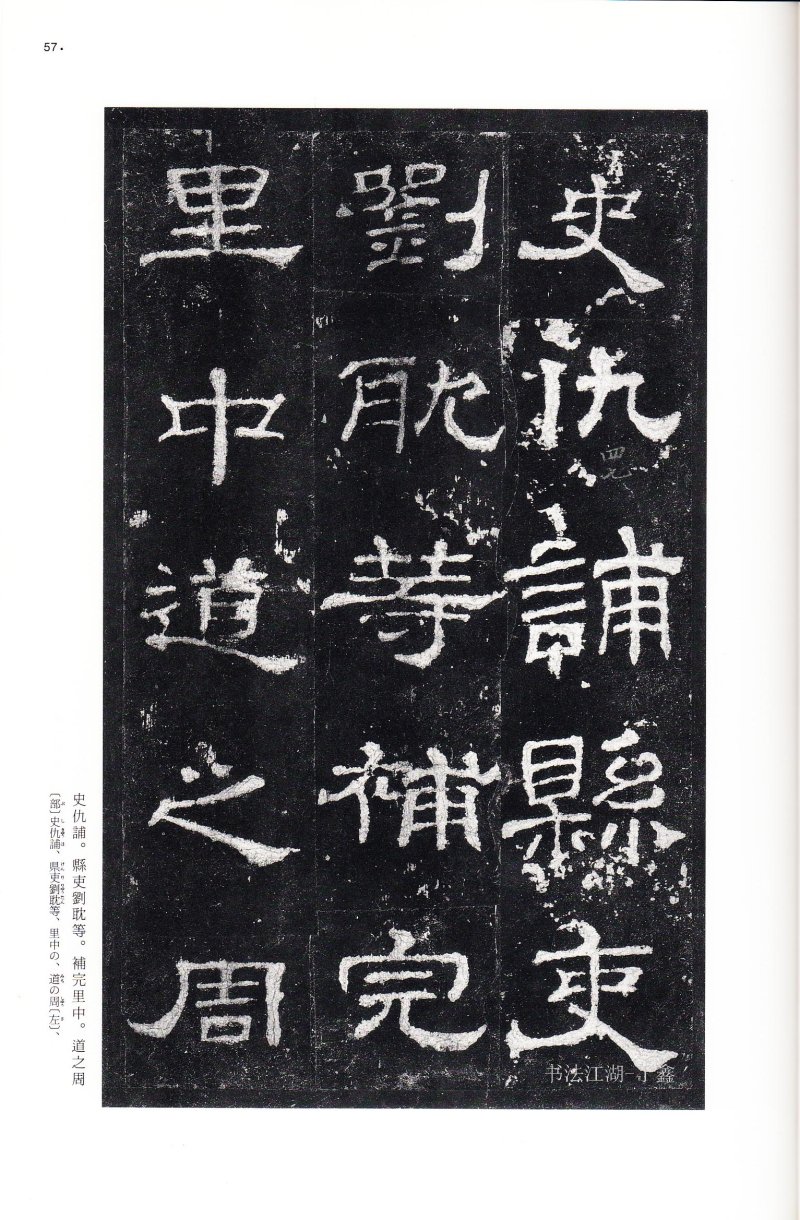 57.
史仇誧縣吏
劉耽等補完
里中道之周
四九
书法江湖 丁鑫
史仇誧。縣吏劉耽等。補完里中。道之周
〔部〕史仇誧、県吏劉耽等、里中の、道の周〔左〕、